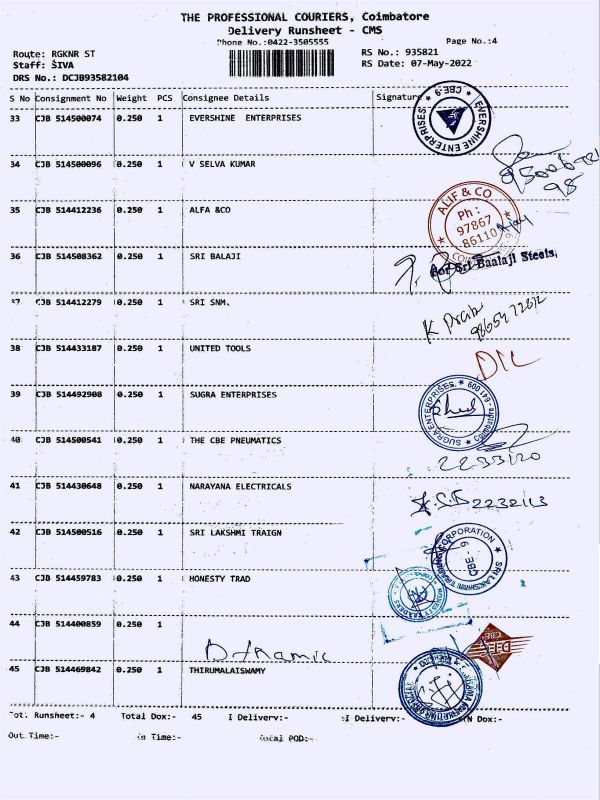 THE PROFESSIONAL COURIERS, Coimbatore
Delivery Runsheet - CMS
Phone No.:0422-3505555
Page No.:4
Route: RGKNR ST
RS No.: 935821
Staff: SIVA
RS Date: 07-May-2022
DRS No.: DCJB93582104
S No Consignment No Weight PCS Consignee Details Signature
33 CJB 514500074 0.250 1 EVERSHINE ENTERPRISES
EVERSHINE ENTERPRISES CBE-9
34 CJB 514500096 0.250 1 V SELVA KUMAR
98
35 CJB 514412236 0.250 1 ALFA &CO
ALIF & CO
Ph:
97867
86110
36 CJB 514508362 0.250 1 SRI BALAJI
For Sri Baalaji Steels,
37 CJB 514412279 0.250 1 SRI SNM.
K
38 CJB 514433187 0.250 1 UNITED TOOLS
39 CJB 514492908 0.250 1 SUGRA ENTERPRISES
SUGRA ENTERPRISES, Coimbatore - 641 009
40 CJB 514500541 0.250 1 THE CBE PNEUMATICS
2233120
41 CJB 514430648 0.250 1 NARAYANA ELECTRICALS
2232113
42 CJB 514500516 0.250 1 SRI LAKSHMI TRAIGN
SRI LAKSHMI TRADING CORPORATION
CBE - 9
43 CJB 514459783 0.250 1 HONESTY TRAD
HONESTY TRADERS
44 CJB 514400859 0.250 1
CBE
45 CJB 514469842 0.250 1 THIRUMALAISWAMY
Tot. Runsheet:- 4 Total Dox:- 45 I Delivery:- II Delivery:- N Dox:-
Out Time:- In Time:- Local POD:-